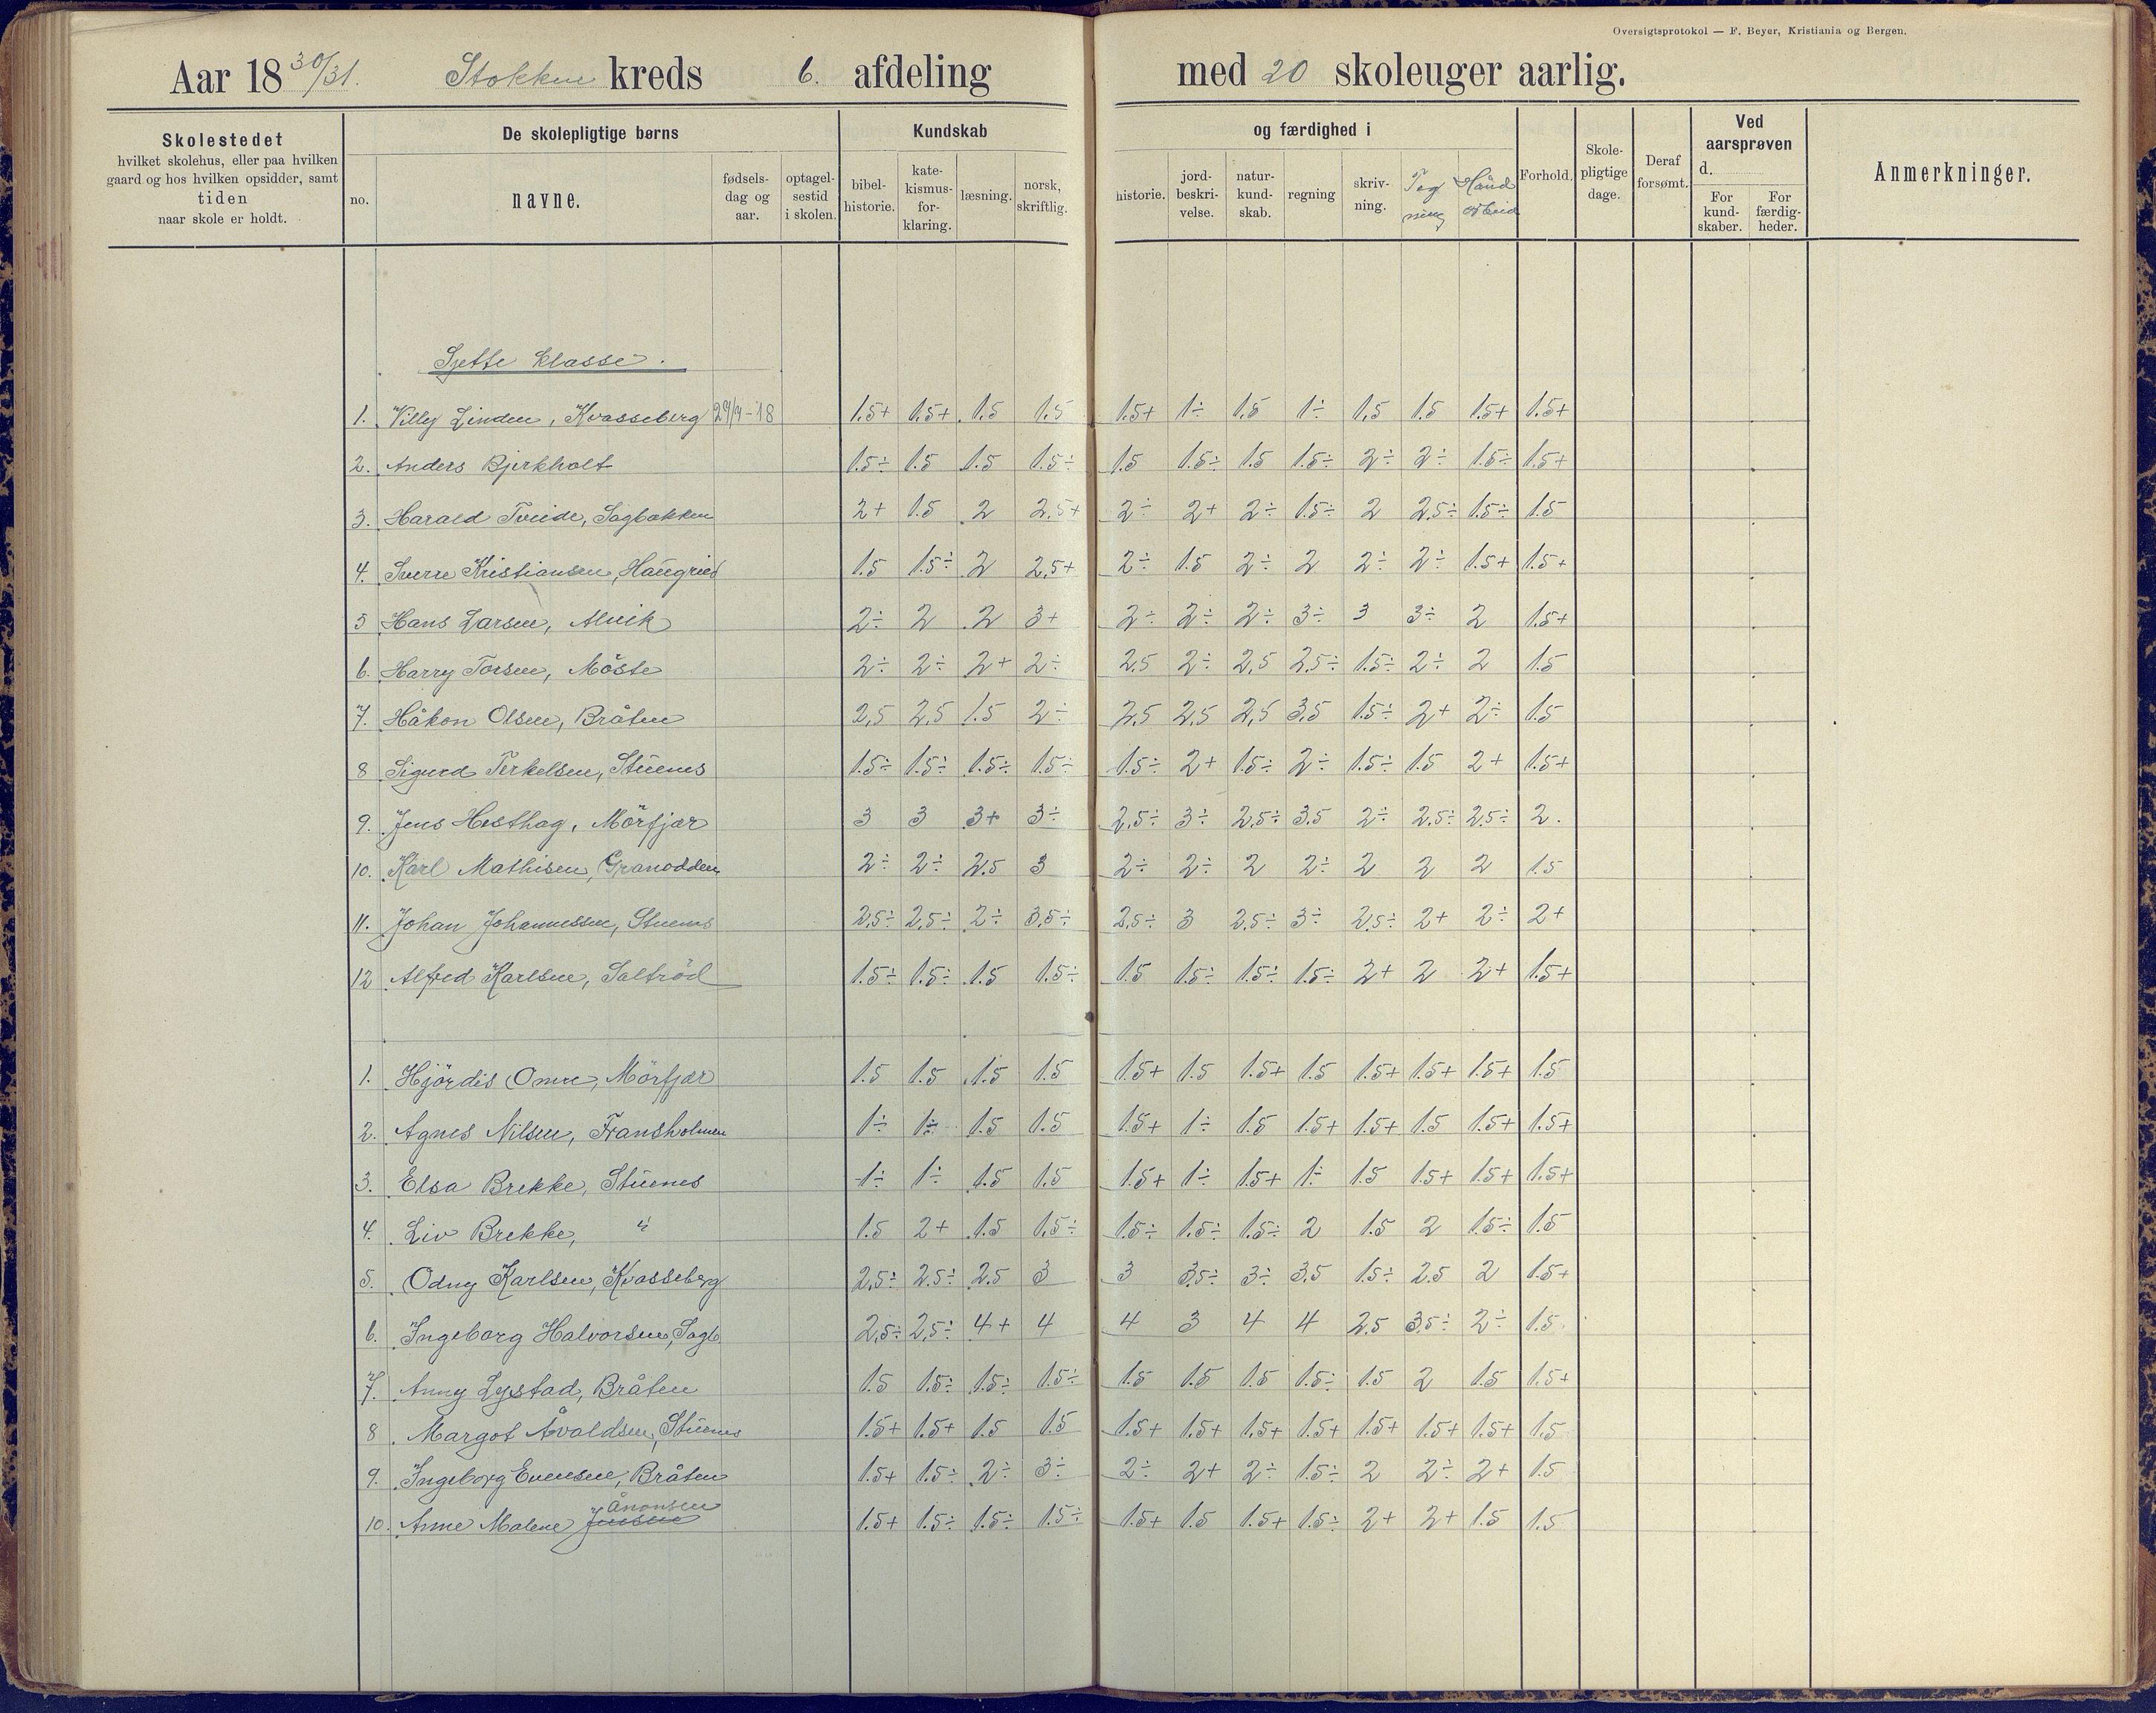 Oversigtsprotokol — F. Beyer, Kristiania og Bergen.
Aar 18 30/31. Stokken kreds 6. afdeling med 20 skoleuger aarlig.
Skolestedet hvilket skolehus, eller paa hvilken gaard og hos hvilken opsidder, samt tiden naar skole er holdt.
De skolepligtige børns
no. navne. fødsels-dag og aar. optagel-sestid i skolen.
Kundskab og færdighed i
bibel-historie. kate-kismus-for-klaring. læsning. norsk, skriftlig. historie. jord-beskri-velse. natur-kund-skab. regning skriv-ning. Teg ning Hånd arbeid
Forhold. Skole-pligtige dage. Deraf forsømt.
Ved aarsprøven d. For kund-skaber. For færdig-heder.
Anmerkninger.
Sjette klasse.
1. Villy Linden, Kvasseberg 29/4-18 1.5+ 1.5+ 1.5 1.5 1.5+ 1÷ 1.5 1÷ 1.5 1.5 1.5+ 1.5+
2. Anders Bjerkholt 1.5÷ 1.5 1.5 1.5÷ 1.5 1.5÷ 1.5 1.5÷ 2÷ 2÷ 1.5÷ 1.5+
3. Harald Tveide, Sagbakken 2+ 1.5 2 2.5+ 2÷ 2+ 2÷ 1.5÷ 2 2.5÷ 1.5÷ 1.5
4. Sverre Kristiansen, 1.5 1.5÷ 2 2.5+ 2÷ 1.5 2÷ 2 2÷ 2÷ 1.5+ 1.5+
5 Hans Larsen, Alvik 2÷ 2 2 3+ 2÷ 2÷ 2÷ 3÷ 3 3÷ 2 1.5+
6. Harry Torsen, Möste 2÷ 2÷ 2+ 2÷ 2.5 2÷ 2,5 2.5÷ 1.5÷ 2÷ 2 1.5
7. Håkon Olsen, Bråten 2,5 2,5 1.5 2÷ 2.5 2,5 2,5 3,5 1.5÷ 2+ 2÷ 1.5
8 Sigurd Terkelsen, Stuenes 1.5÷ 1.5÷ 1.5÷ 1.5÷ 1.5÷ 2+ 1.5÷ 2÷ 1.5÷ 1.5 2+ 1.5+
9. Jens Hesthag, Mörfjær 3 3 3+ 3÷ 2,5÷ 3÷ 2,5÷ 3.5 2÷ 2.5÷ 2.5÷ 2.
10. Karl Mathisen, Granodden 2÷ 2÷ 2.5 3 2÷ 2÷ 2 2÷ 2 2 2 1.5
11. Johan Johannessen, Stuenes 2,5÷ 2,5÷ 2÷ 3,5÷ 2,5÷ 3 2.5÷ 3÷ 2,5÷ 2+ 2÷ 2+
12 Alfred Karlsen, Saltröd 1.5÷ 1.5÷ 1.5 1.5÷ 1.5 1.5÷ 1.5÷ 1.5÷ 2+ 2 2+ 1.5+
1. Hjördis Omre, Mörfjær 1.5 1.5 1.5 1.5 1.5+ 1.5 1.5+ 1.5 1.5+ 1.5+ 1.5+ 1.5
2. Agnes Nilsen, Fransholmen 1÷ 1÷ 1.5 1.5 1.5+ 1÷ 1.5 1.5+ 1.5+ 1.5 1.5+ 1.5+
3. Elsa Brekke, Stuenes 1÷ 1÷ 1.5 1.5 1.5+ 1÷ 1.5+ 1÷ 1.5 1.5+ 1.5+ 1.5+
4. Liv Brekke, " 1.5 2+ 1.5 1,5÷ 1.5÷ 1.5÷ 1.5÷ 2 1.5 2 1.5÷ 1.5
5. Odny Karlsen, Kvasseberg 2,5÷ 2.5÷ 2.5 3 3 3,5÷ 3÷ 3.5 1.5÷ 2.5 2 1.5+
6. Ingeborg Halvorsen, Sagb. 2,5÷ 2,5÷ 4+ 4 4 3 4 4 2.5 3.5÷ 2÷ 1.5
7. Anny Lystad, Bråten 1.5 1.5÷ 1.5÷ 1.5÷ 1.5 1.5 1.5 1.5÷ 1.5 2 1.5 1.5+
8 Margot Åvaldsen, Stuenes 1.5+ 1.5+ 1.5 1.5 1.5+ 1.5+ 1.5+ 1.5+ 1.5+ 1.5+ 1.5+ 1.5
9. Ingeborg Evensen, Bråten 1.5+ 1.5÷ 2÷ 3÷ 2÷ 2+ 2÷ 1.5÷ 2 2÷ 2+ 1.5
Ånonsen
10. Anne Malene Jensen 1.5+ 1.5÷ 1.5÷ 1.5÷ 1.5+ 1.5 1.5+ 1.5÷ 2+ 2+ 1.5 1.5